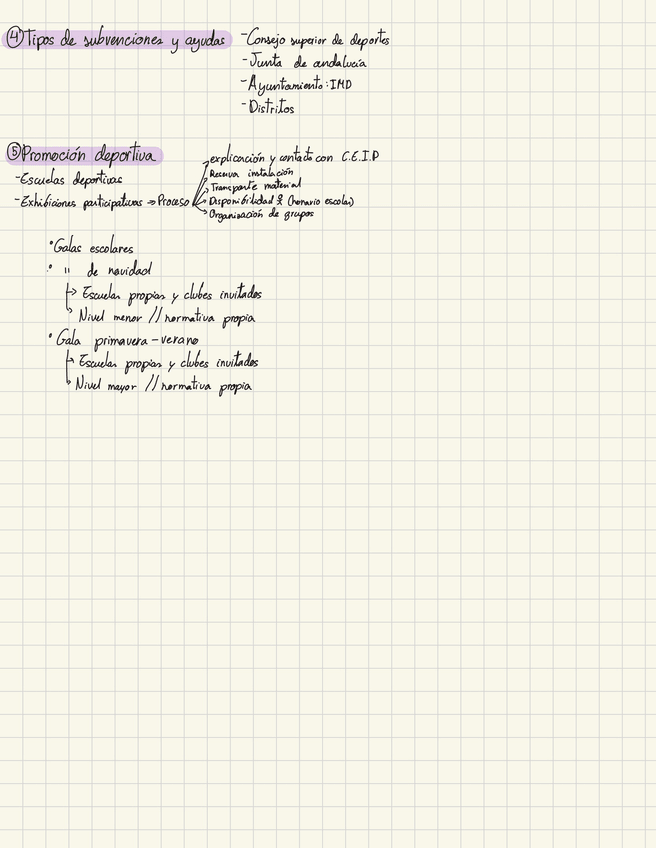 ④ Tipos de subvenciones y ayudas
- Consejo superior de deportes
- Junta de andalucía
- Ayuntamiento: IMD
- Distritos
⑤ Promoción deportiva
- Escuelas deportivas
- Exhibiciones participativas ⇒ Proceso
→ explicación y contacto con C.E.I.P
→ Reserva instalación
→ Transporte material
→ Disponibilidad (horario escolar)
→ Organización de grupos
• Galas escolares
• " de navidad
↳ Escuelas propias y clubes invitados
↳ Nivel menor // normativa propia
• Gala primavera - verano
↳ Escuelas propias y clubes invitados
↳ Nivel mayor // normativa propia